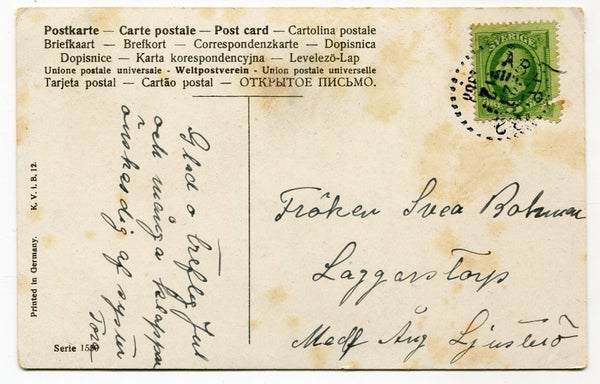 Postkarte — Carte postale — Post card — Cartolina postale
Briefkaart — Brefkort — Correspondenzkarte — Dopisnica
Dopisnice — Karta korespondencyjna — Levelező-Lap
Unione postale universale - Weltpostverein - Union postale universelle
Tarjeta postal — Cartão postal — ОТКРЫТОЕ ПИСЬМО.
SVERIGE
Glad o treflig Jul
och många klappar
önskas dig af syster
Fröken Svea Bohman
Laggarstorp
Medf Ång Ljusterö
Printed in Germany.
K. V. i. B. 12.
Serie